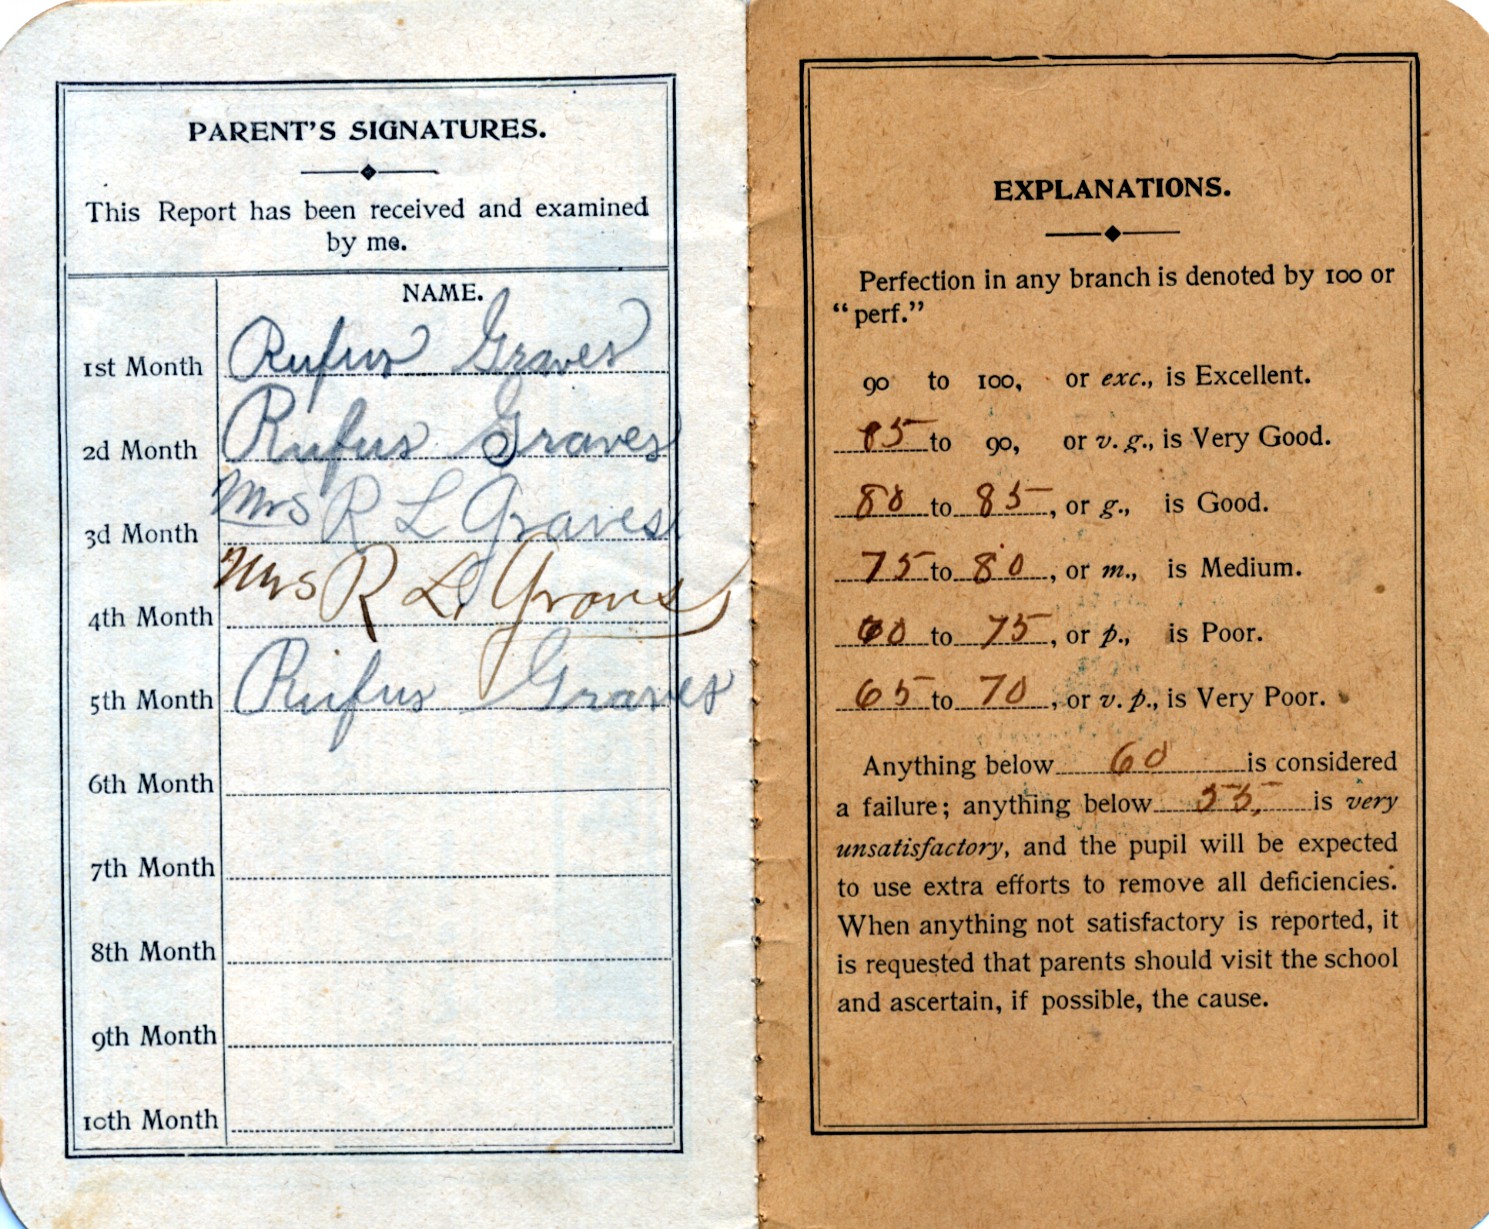 PARENT'S SIGNATURES.
This Report has been received and examined
by me.
NAME.
1st Month Rufus Graves
2d Month Rufus Graves
3d Month Mrs R L Graves
4th Month Mrs R L. Graves
5th Month Rufus Graves
6th Month
7th Month
8th Month
9th Month
10th Month
EXPLANATIONS.
Perfection in any branch is denoted by 100 or
"perf."
90 to 100, or exc., is Excellent.
85 to 90, or v. g., is Very Good.
80 to 85, or g., is Good.
75 to 80, or m., is Medium.
to 75, or p., is Poor.
65 to 70, or v. p., is Very Poor.
Anything below 60 is considered
a failure; anything below 55, is very
unsatisfactory, and the pupil will be expected
to use extra efforts to remove all deficiencies.
When anything not satisfactory is reported, it
is requested that parents should visit the school
and ascertain, if possible, the cause.